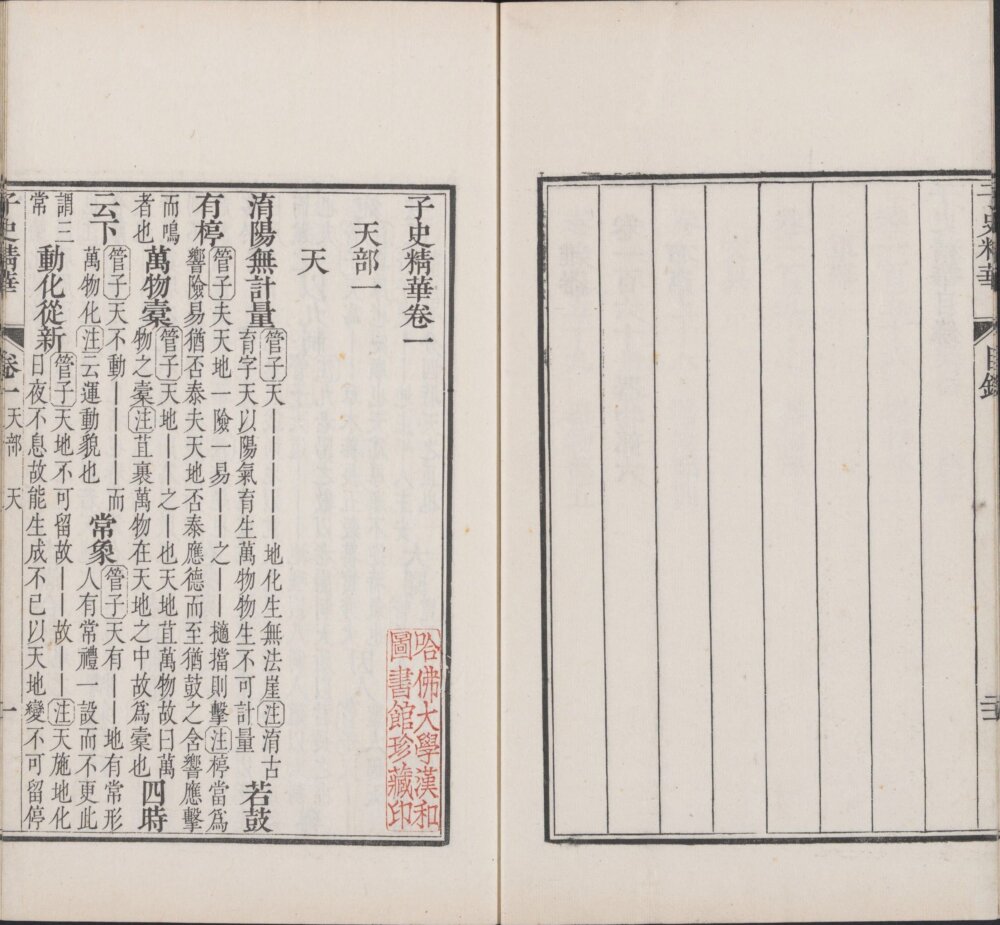 子史精華
目錄
子史精華卷一
哈佛大學漢和
圖書館珍藏印
天部一
天
淯陽無計量
管子天｜｜｜｜｜地化生無法崖注淯古
育字天以陽氣育生萬物物生不可計量
若鼓
有楟
管子夫天地一險一易｜之｜｜擿擋則擊注楟當爲
響險易猶否泰夫天地否泰應德而至猶鼓之含響應擊
而鳴
者也
萬物橐
管子天地｜｜之｜也天地苴萬物故曰萬
物之橐注苴裹萬物在天地之中故爲橐也
四時
云下
管子天不動｜｜｜｜而
萬物化注云運動貌也
常象
管子天有｜｜地有常形
人有常禮一設而不更此
謂三
常
動化從新
管子天地不可留故｜｜故｜｜注天施地化
日夜不息故能生成不已以天地變不可留停
子史精華
卷一 天部 天
一